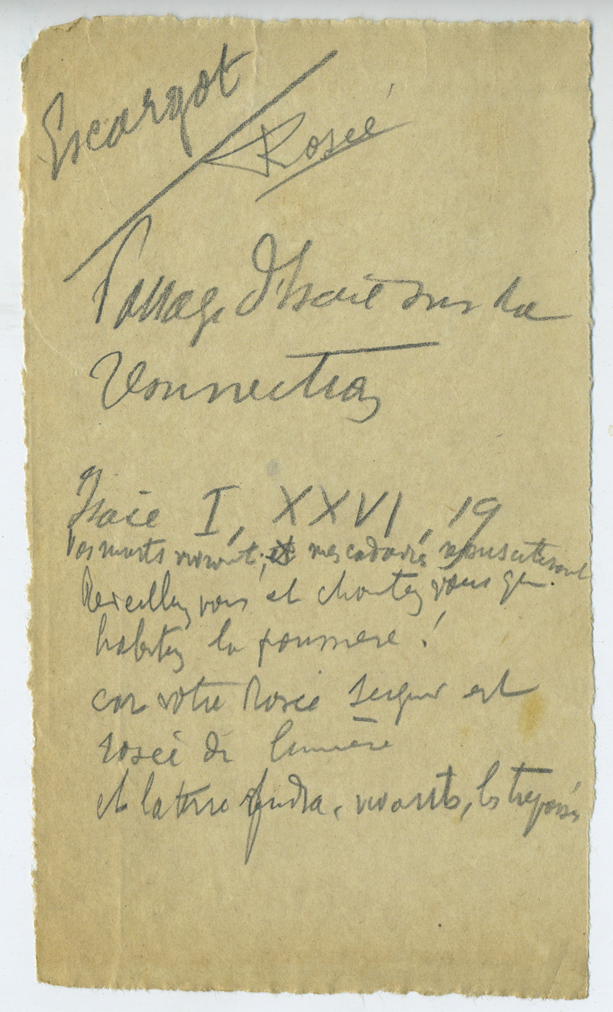 Escargot
Rosée
Passage d'Isaïe sur la
résurrection
Isaïe I, XXVI, 19
Vos morts vivront, et mes cadavres ressusciteront
Réveillez vous et chantez vous qui
habitez la poussière !
car votre Rosée Seigneur est
rosée de lumière
et la terre rendra, vivants, les trépassés